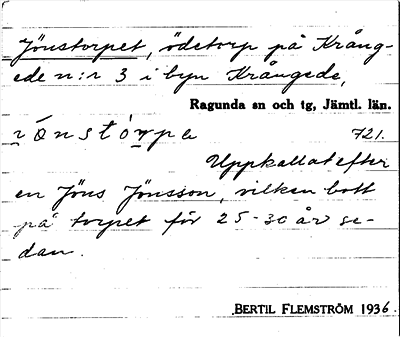 Jönstorpet, ödetorp på Krång-
ede n:r 3 i byn Krångede,
Ragunda sn och tg, Jämtl. län.
721.
Uppkallat efter
en Jöns Jönsson, vilken bott
på torpet för 25-30 år se-
dan.
BERTIL FLEMSTRÖM 1936.